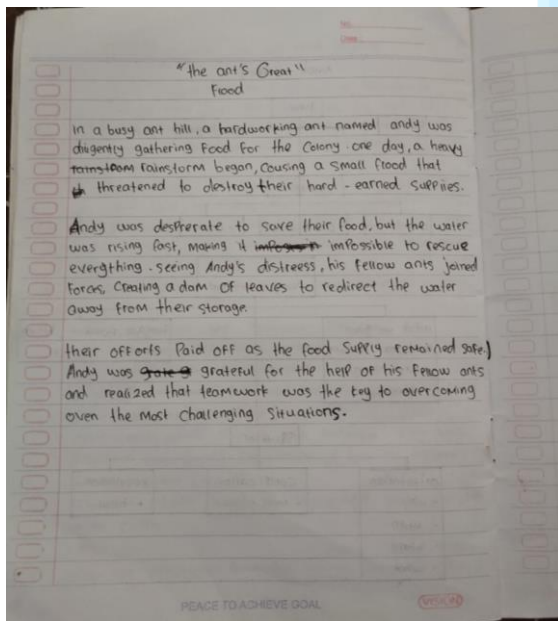 No.
Date
"the ant's Great"
Flood
In a busy ant hill, a hardworking ant named andy was
diligently gathering Food For the Colony. one day, a heavy
rainstrom rainstorm began, Causing a small flood that
threatened to destroy their hard-earned supplies.
Andy was despterate to save their food, but the water
was rising fast, making it impossible to rescue
everything. seeing Andy's distreess, his fellow ants joined
Forces, Creating a dam OF leaves to redirect the water
away from their storage.
their efforts Paid off as the food supply remained safe.)
Andy was grateful for the help of his Fellow ants
and realized that teamwork was the key to overcoming
even the Most Challenging Situations.
PEACE TO ACHIEVE GOAL
VISION